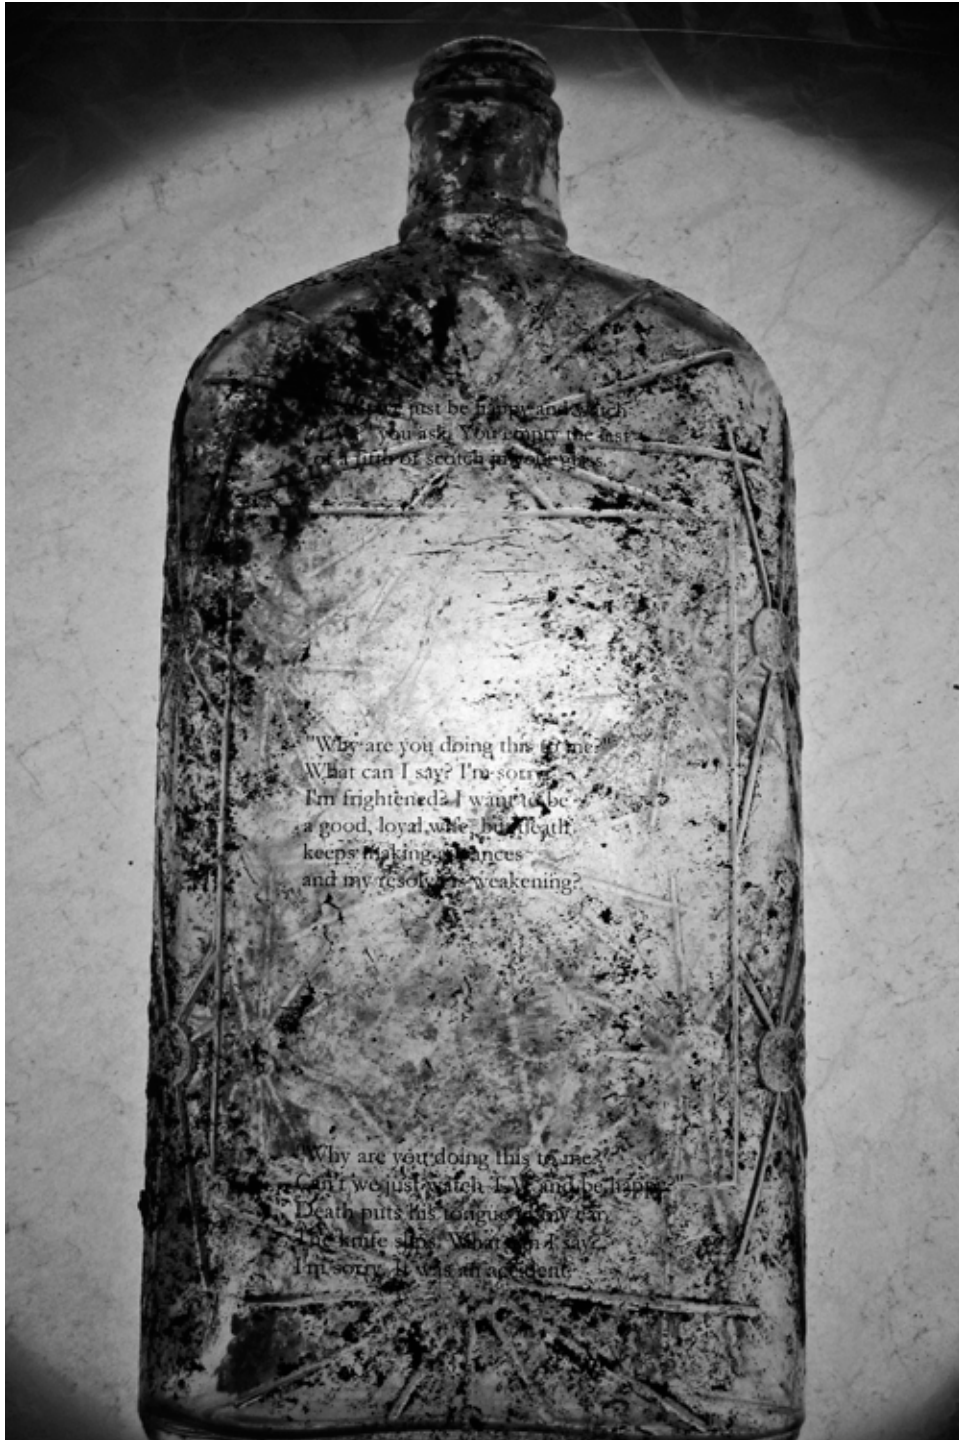 just be happy and watch
you ask. You empty the last
of a fifth of scotch in your glass.
"Why are you doing this to me?"
What can I say? I'm sorry?
I'm frightened? I want to be
a good, loyal wife, but death
keeps making advances
and my resolve is weakening?
"Why are you doing this to me?
Can't we just watch T.V. and be happy?"
Death puts his tongue in my ear.
The knife slips. What can I say?
I'm sorry. It was an accident.